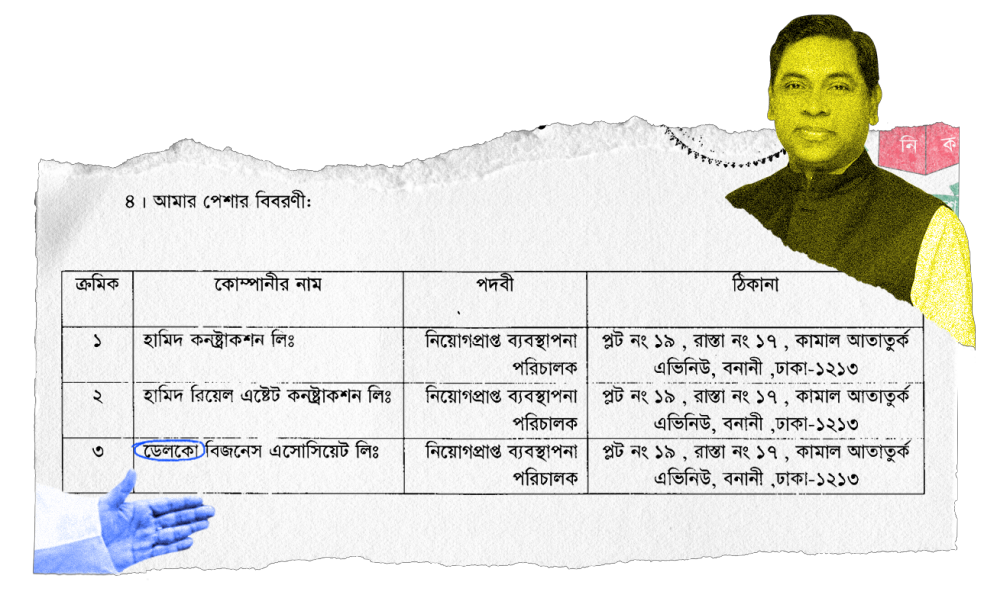 নি র্ক
৪। আমার পেশার বিবরণী:
ক্রমিক কোম্পানীর নাম পদবী ঠিকানা
১ হামিদ কনষ্ট্রাকশন লিঃ নিয়োগপ্রাপ্ত ব্যবস্থাপনা প্লট নং ১৯ , রাস্তা নং ১৭ , কামাল আতাতুর্ক
পরিচালক এভিনিউ, বনানী ,ঢাকা-১২১৩
২ হামিদ রিয়েল এষ্টেট কনষ্ট্রাকশন লিঃ নিয়োগপ্রাপ্ত ব্যবস্থাপনা প্লট নং ১৯ , রাস্তা নং ১৭ , কামাল আতাতুর্ক
পরিচালক এভিনিউ, বনানী ,ঢাকা-১২১৩
৩ ডেলকো বিজনেস এসোসিয়েট লিঃ নিয়োগপ্রাপ্ত ব্যবস্থাপনা প্লট নং ১৯ , রাস্তা নং ১৭ , কামাল আতাতুর্ক
পরিচালক এভিনিউ, বনানী ,ঢাকা-১২১৩